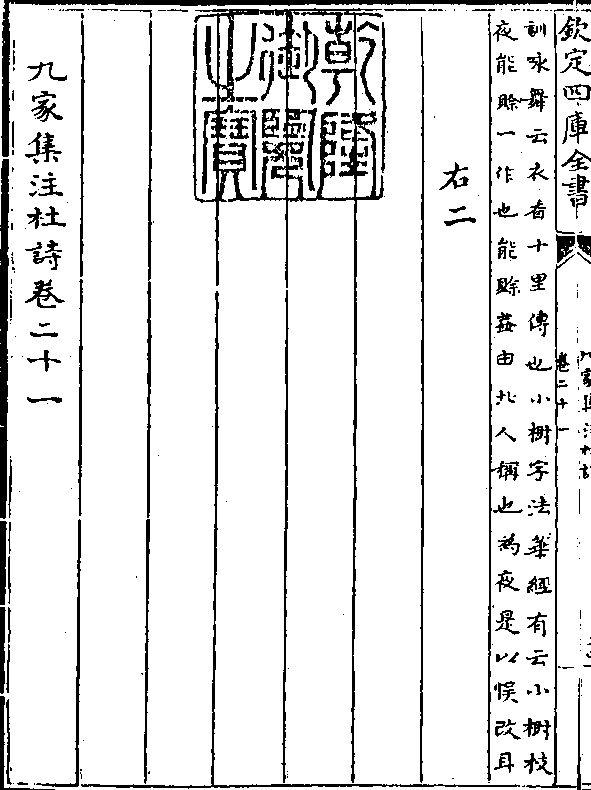 欽定四庫全書
九家集注杜詩
卷二十一
訓咏舞云衣香十里傳也小樹字法華經有云小樹枝
夜能賒一作也能賒葢由北人稱也為夜是以悞改耳
右二
乾隆
御覽
之寶
九家集注杜詩卷二十一